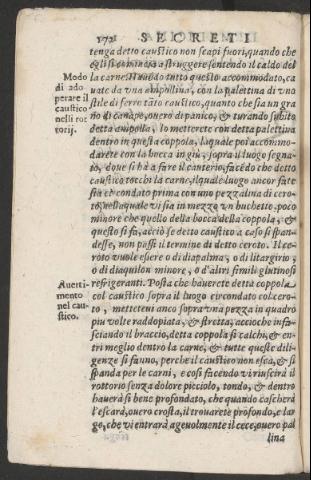 172 SECRETI
tenga detto caustico non scapi fuori, quando che
egli si comincia a struggere sentendo il caldo del
la carne. Hauēdo tutto questo accommodato, ca
uate da vna ampollina, con la palettina di vno
stile di ferro tāto caustico, quanto che sia un gra
no di canape, ouero di panico, & turando subito
detta ampolla, lo metterete con detta palettina
dentro in questa coppola, laquale poi accommo-
darete con la bocca in giù, sopra il luogo segna-
to, doue si hà a fare il canterio, facēdo che detto
caustico tocchi la carne, ilquale luogo ancor fate
sia circondato prima con uno pezzalina di cero-
to, nella quale vi sia in mezzo vn buchetto poco
minore che quello della bocca della coppola, &
questo si fa, acciò se detto caustico a caso si span-
desse, non passi il termine di detto ceroto. Il ce-
roto vuole essere o di diapalma, o di litargirio,
o di diaquilon minore, o d'altri simili glutinosi
refrigeranti. Posta che hauerete detta coppola
col caustico sopra il luogo circondato col cero-
to, metteteui anco sopra vna pezza in quadro
piu volte raddopiata, & stretta, accioche in fa-
sciando il braccio, detta coppola si calchi, & en-
tri meglio dentro la carne, & tutte queste dili-
genze si fanno, perche il caustico non esca, & si
spanda per le carni, e cosi facendo vi riuscirà il
rottorio senza dolore picciolo, tondo, & dentro
hauerà si bene profondato, che quando cascherà
l'escarà, ouero crosta, il trouarete profondo, e lar
go, che vi entrarà ageuolmente il cece, ouero pal
lina
Modo
di ado
perare il
caustico
nelli rot
torij.
Auerti-
mento
nel cau-
stico.